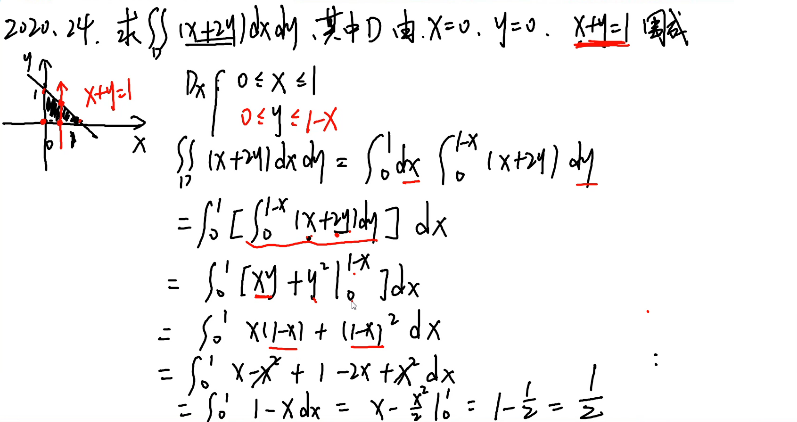 2020.24. 求∬_D (x+2y)dxdy,其中D由 x=0. y=0. x+y=1 围成
y 1 x+y=1 0 1 x
Dx { 0≤x≤1
0≤y≤1-x
∬_D (x+2y)dxdy = ∫_0^1 dx ∫_0^{1-x} (x+2y) dy
= ∫_0^1 [∫_0^{1-x} (x+2y)dy] dx
= ∫_0^1 [xy + y² |_0^{1-x}] dx
= ∫_0^1 x(1-x) + (1-x)² dx
= ∫_0^1 x-x² + 1-2x+x² dx
= ∫_0^1 1-x dx = x - x²/2 |_0^1 = 1 - 1/2 = 1/2